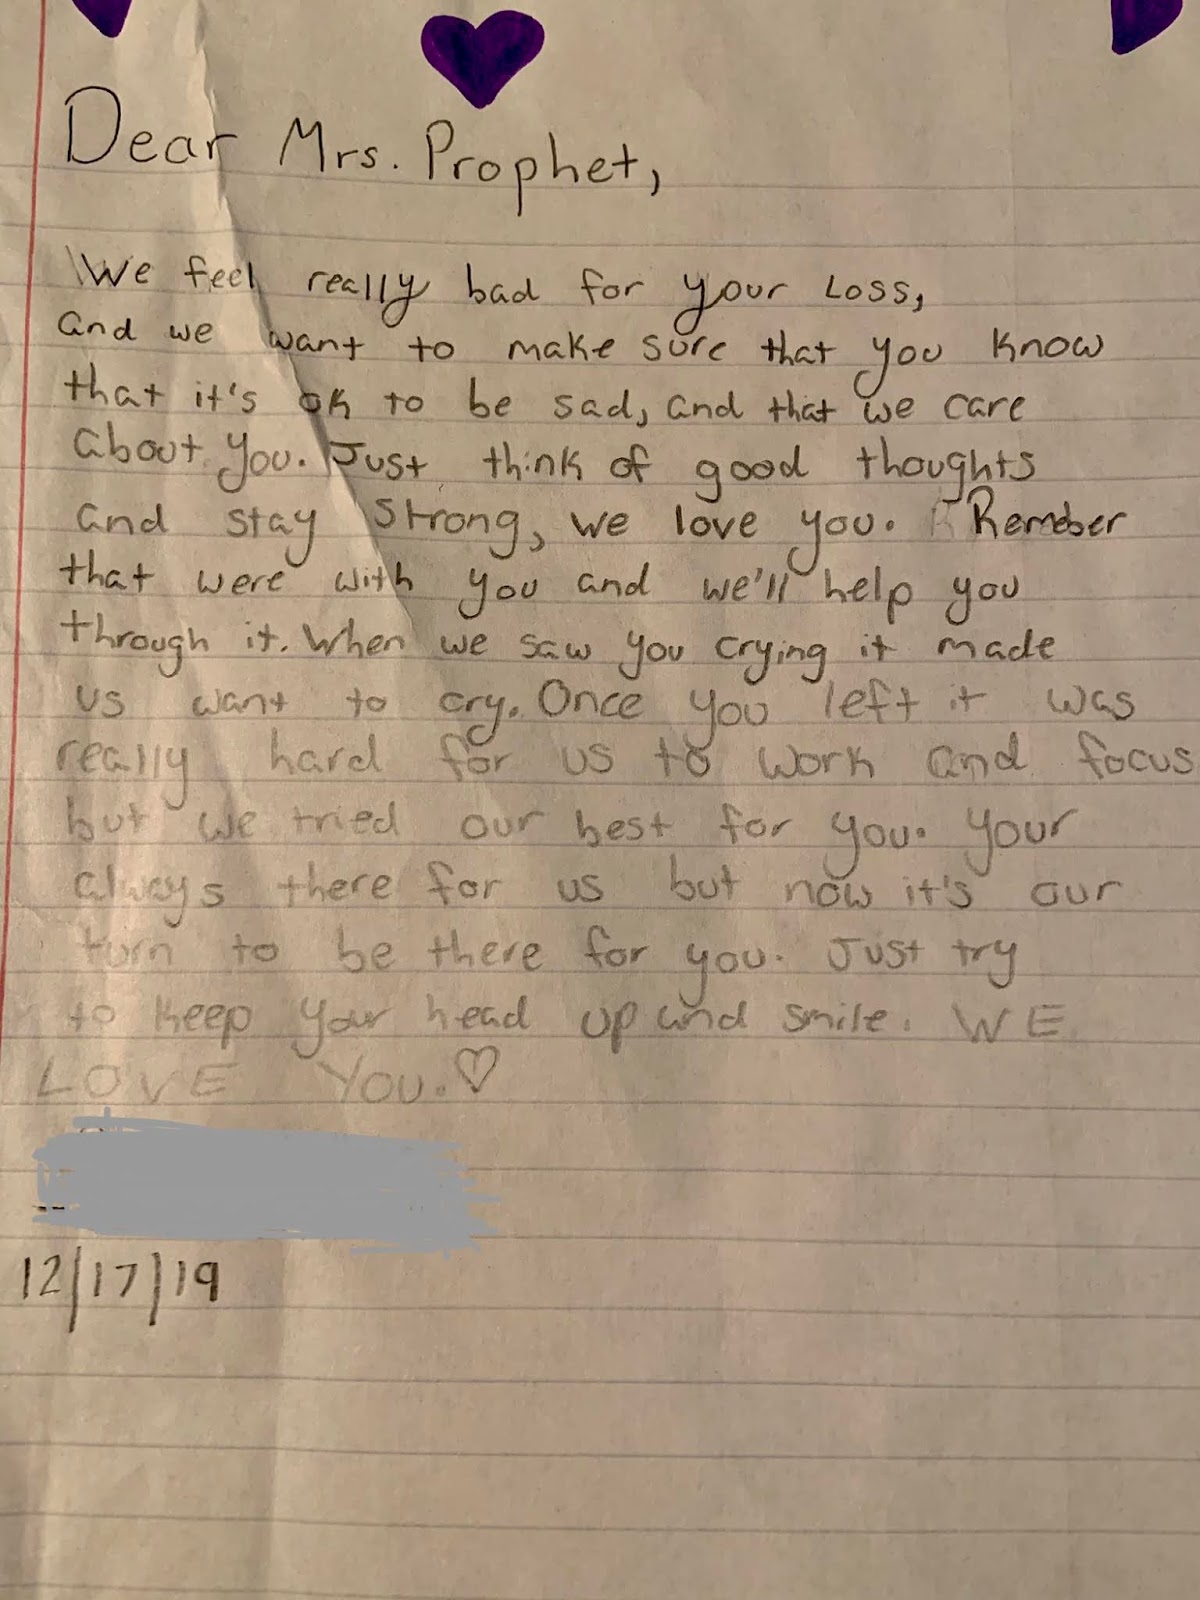 Dear Mrs. Prophet,
We feel really bad for your Loss,
and we want to make sure that you know
that it's ok to be sad, and that we care
about you. Just think of good thoughts
and stay strong, we love you. Remeber
that were with you and we'll help you
through it. When we saw you crying it made
us want to cry. Once you left it was
really hard for us to work and focus
but we tried our best for you. Your
always there for us but now it's our
turn to be there for you. Just try
to keep your head up and smile. WE
LOVE YOU.♡
12/17/19